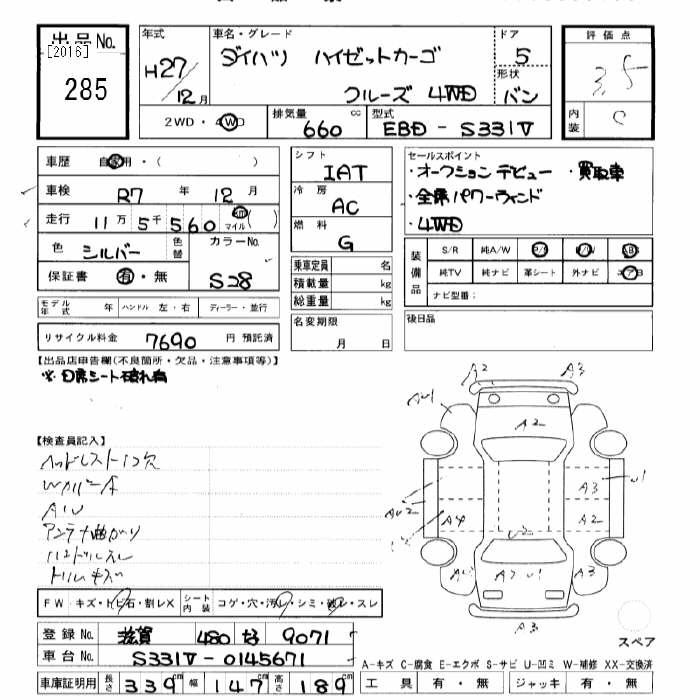 出品No.
[2016]
285
年式
H27/12月
車名・グレード
ダイハツ ハイゼットカーゴ
クルーズ 4WD
ドア
5
形状
バン
2WD・4WD
排気量 660 cc
型式 EBD-S331V
評価点
3.5
内装 C
車歴 自家用・( )
車検 R7 年 12 月
走行 11万 5千 560 km マイル ( )
色 シルバー 色替
カラーNo.
S28
保証書 有・無
モデル年式 年 ハンドル 左・右 ディーラー・並行
リサイクル料金 7690 円 預託済
シフト
IAT
冷房
AC
燃料
G
乗車定員 名
積載量 kg
総重量 kg
名変期限
月 日
セールスポイント
・オークションデビュー ・買取車
・全席パワーウィンド
・4WD
装備品
S/R 純A/W P/S P/W ABS
純TV 純ナビ 革シート 外ナビ エアB
ナビ型番:
後日品
【出品店申告欄(不良箇所・欠品・注意事項等)】
【検査員記入】
アンテナ曲がり
ハンドルスレ
トリムキズ
FW キズ・トビ石・割レX シート内装 コゲ・穴・汚レ・シミ・破レ・スレ
登録No. 滋賀 480 な 9071
車台No. S331V-0145671
車庫証明用 長さ 339cm 幅 147cm 高さ 189cm
A2 A3
A2
U1
A3
A4 A2
A3
A3
スペア
A-キズ C-腐食 E-エクボ S-サビ U-凹ミ W-補修 XX-交換済
工具 有・無 ジャッキ 有・無